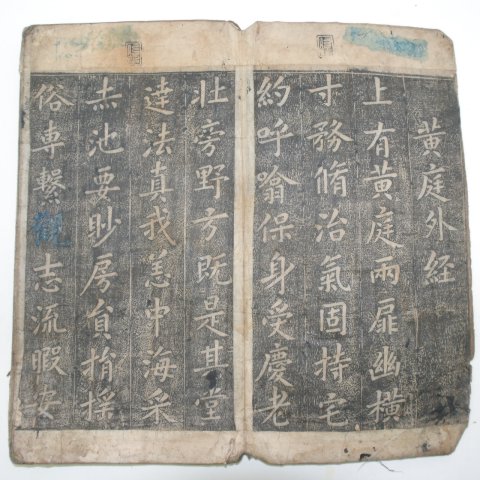 黄庭外経
上有黄庭兩扉幽橫
寸務脩治氣固持宅
約呼噏保身受慶老
壯旁野方既是其堂
達法真我恙中海采
赤池要眇房貟揹採
俗専繫觀志流暇安